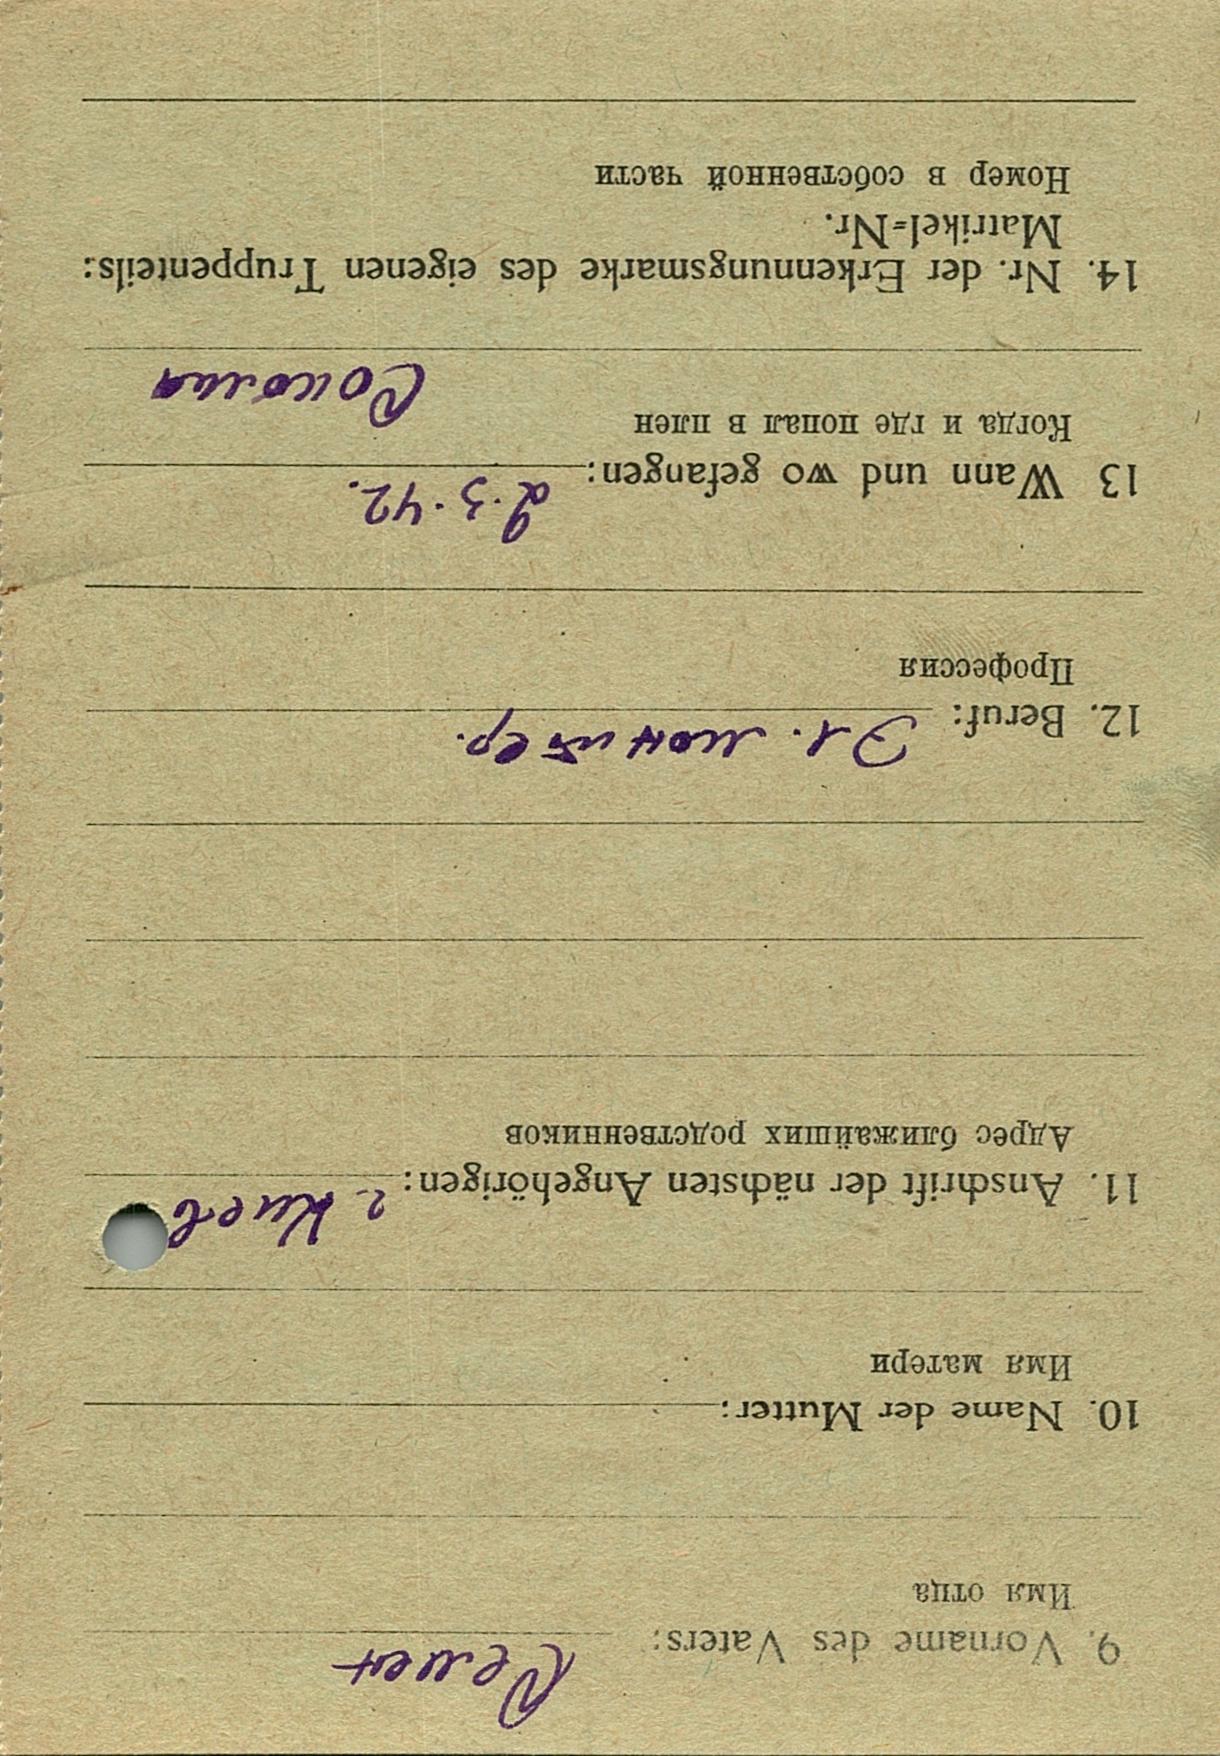 9. Vorname des Vaters: Семен
Имя отца
10. Name der Mutter:
Имя матери
11. Anschrift der nächsten Angehörigen: г. Киев
Адрес ближайших родственников
12. Beruf: Эл. монтер.
Профессия
13 Wann und wo gefangen: 2.3.42.
Когда и где попал в плен
14. Nr. der Erkennungsmarke des eigenen Truppenteils:
Matrikel=Nr.
Номер в собственной части